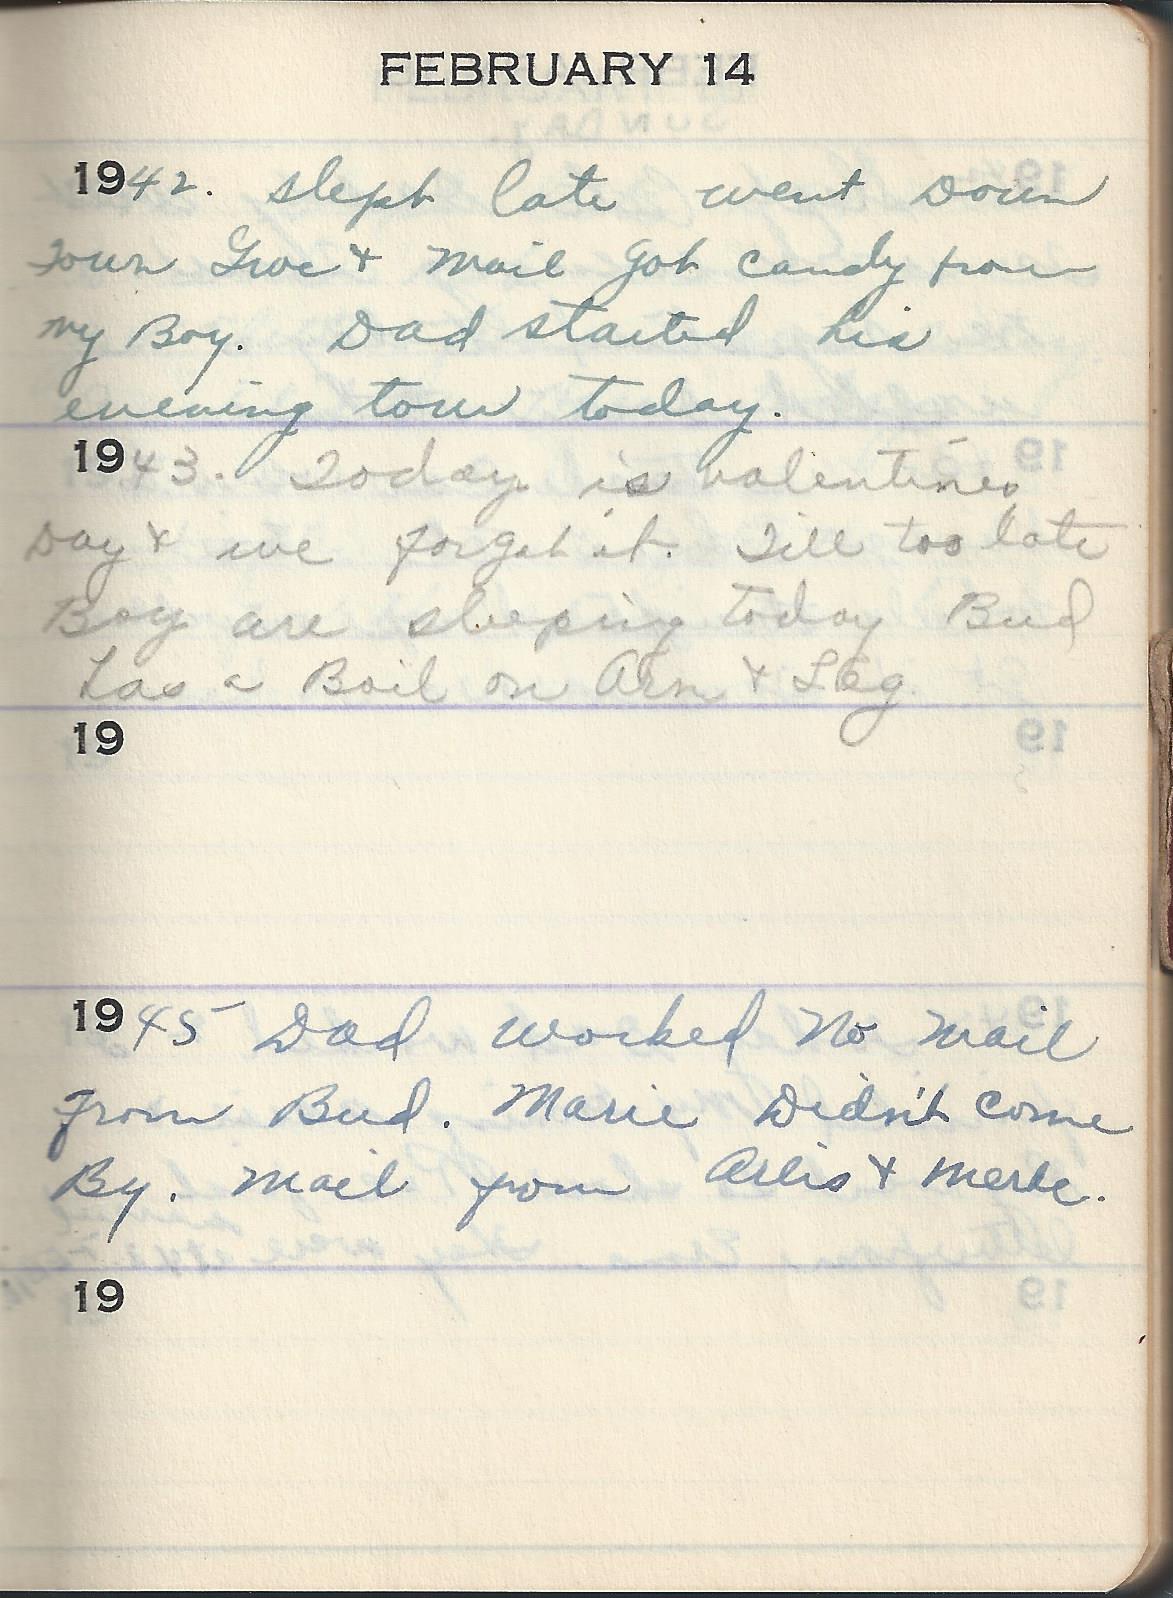 FEBRUARY 14
1942. slept late went Down
Town Groc & Mail got candy from
my Boy. Dad started his
evening tour today.
1943. Today is valentines
Day & we forgot it. Till too late
Boy are sleeping today Bud
has a Boil on Arm & Leg
19
1945 Dad worked No Mail
From Bud. Marie Didn't come
By. Mail from Arlis & Merle.
19